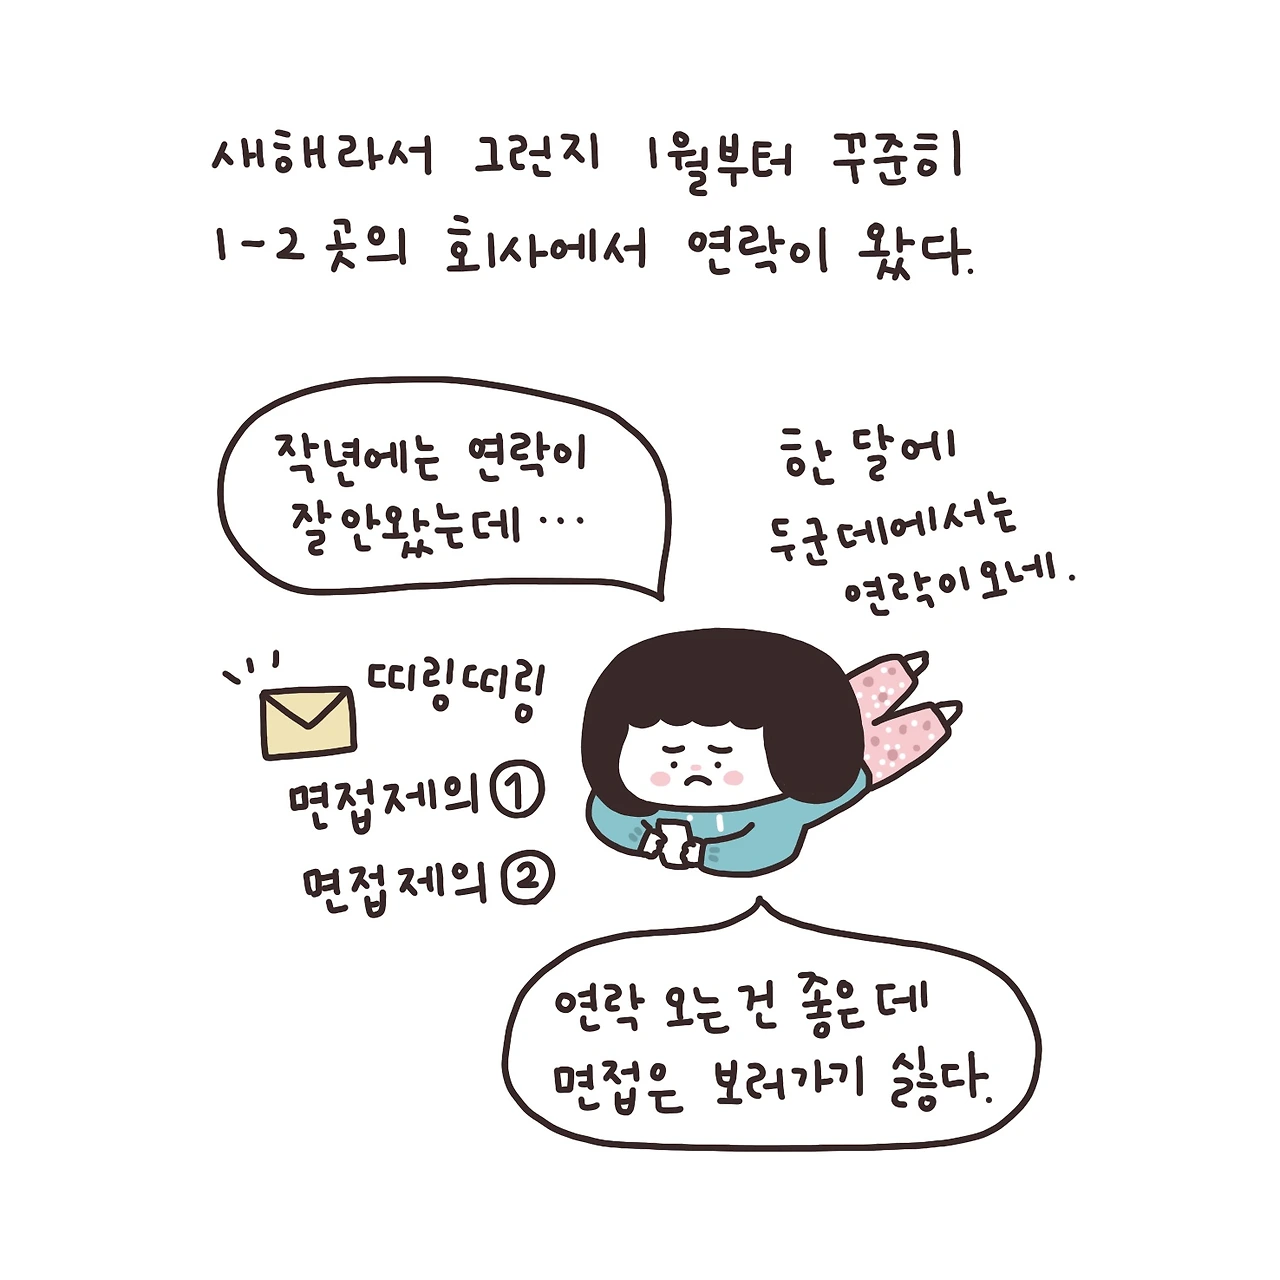 새해라서 그런지 1월부터 꾸준히
1-2 곳의 회사에서 연락이 왔다.
작년에는 연락이
잘 안왔는데 ...
한 달에
두군데에서는
연락이오네.
띠링띠링
면접제의 ①
면접제의 ②
연락 오는건 좋은데
면접은 보러가기 싫다.